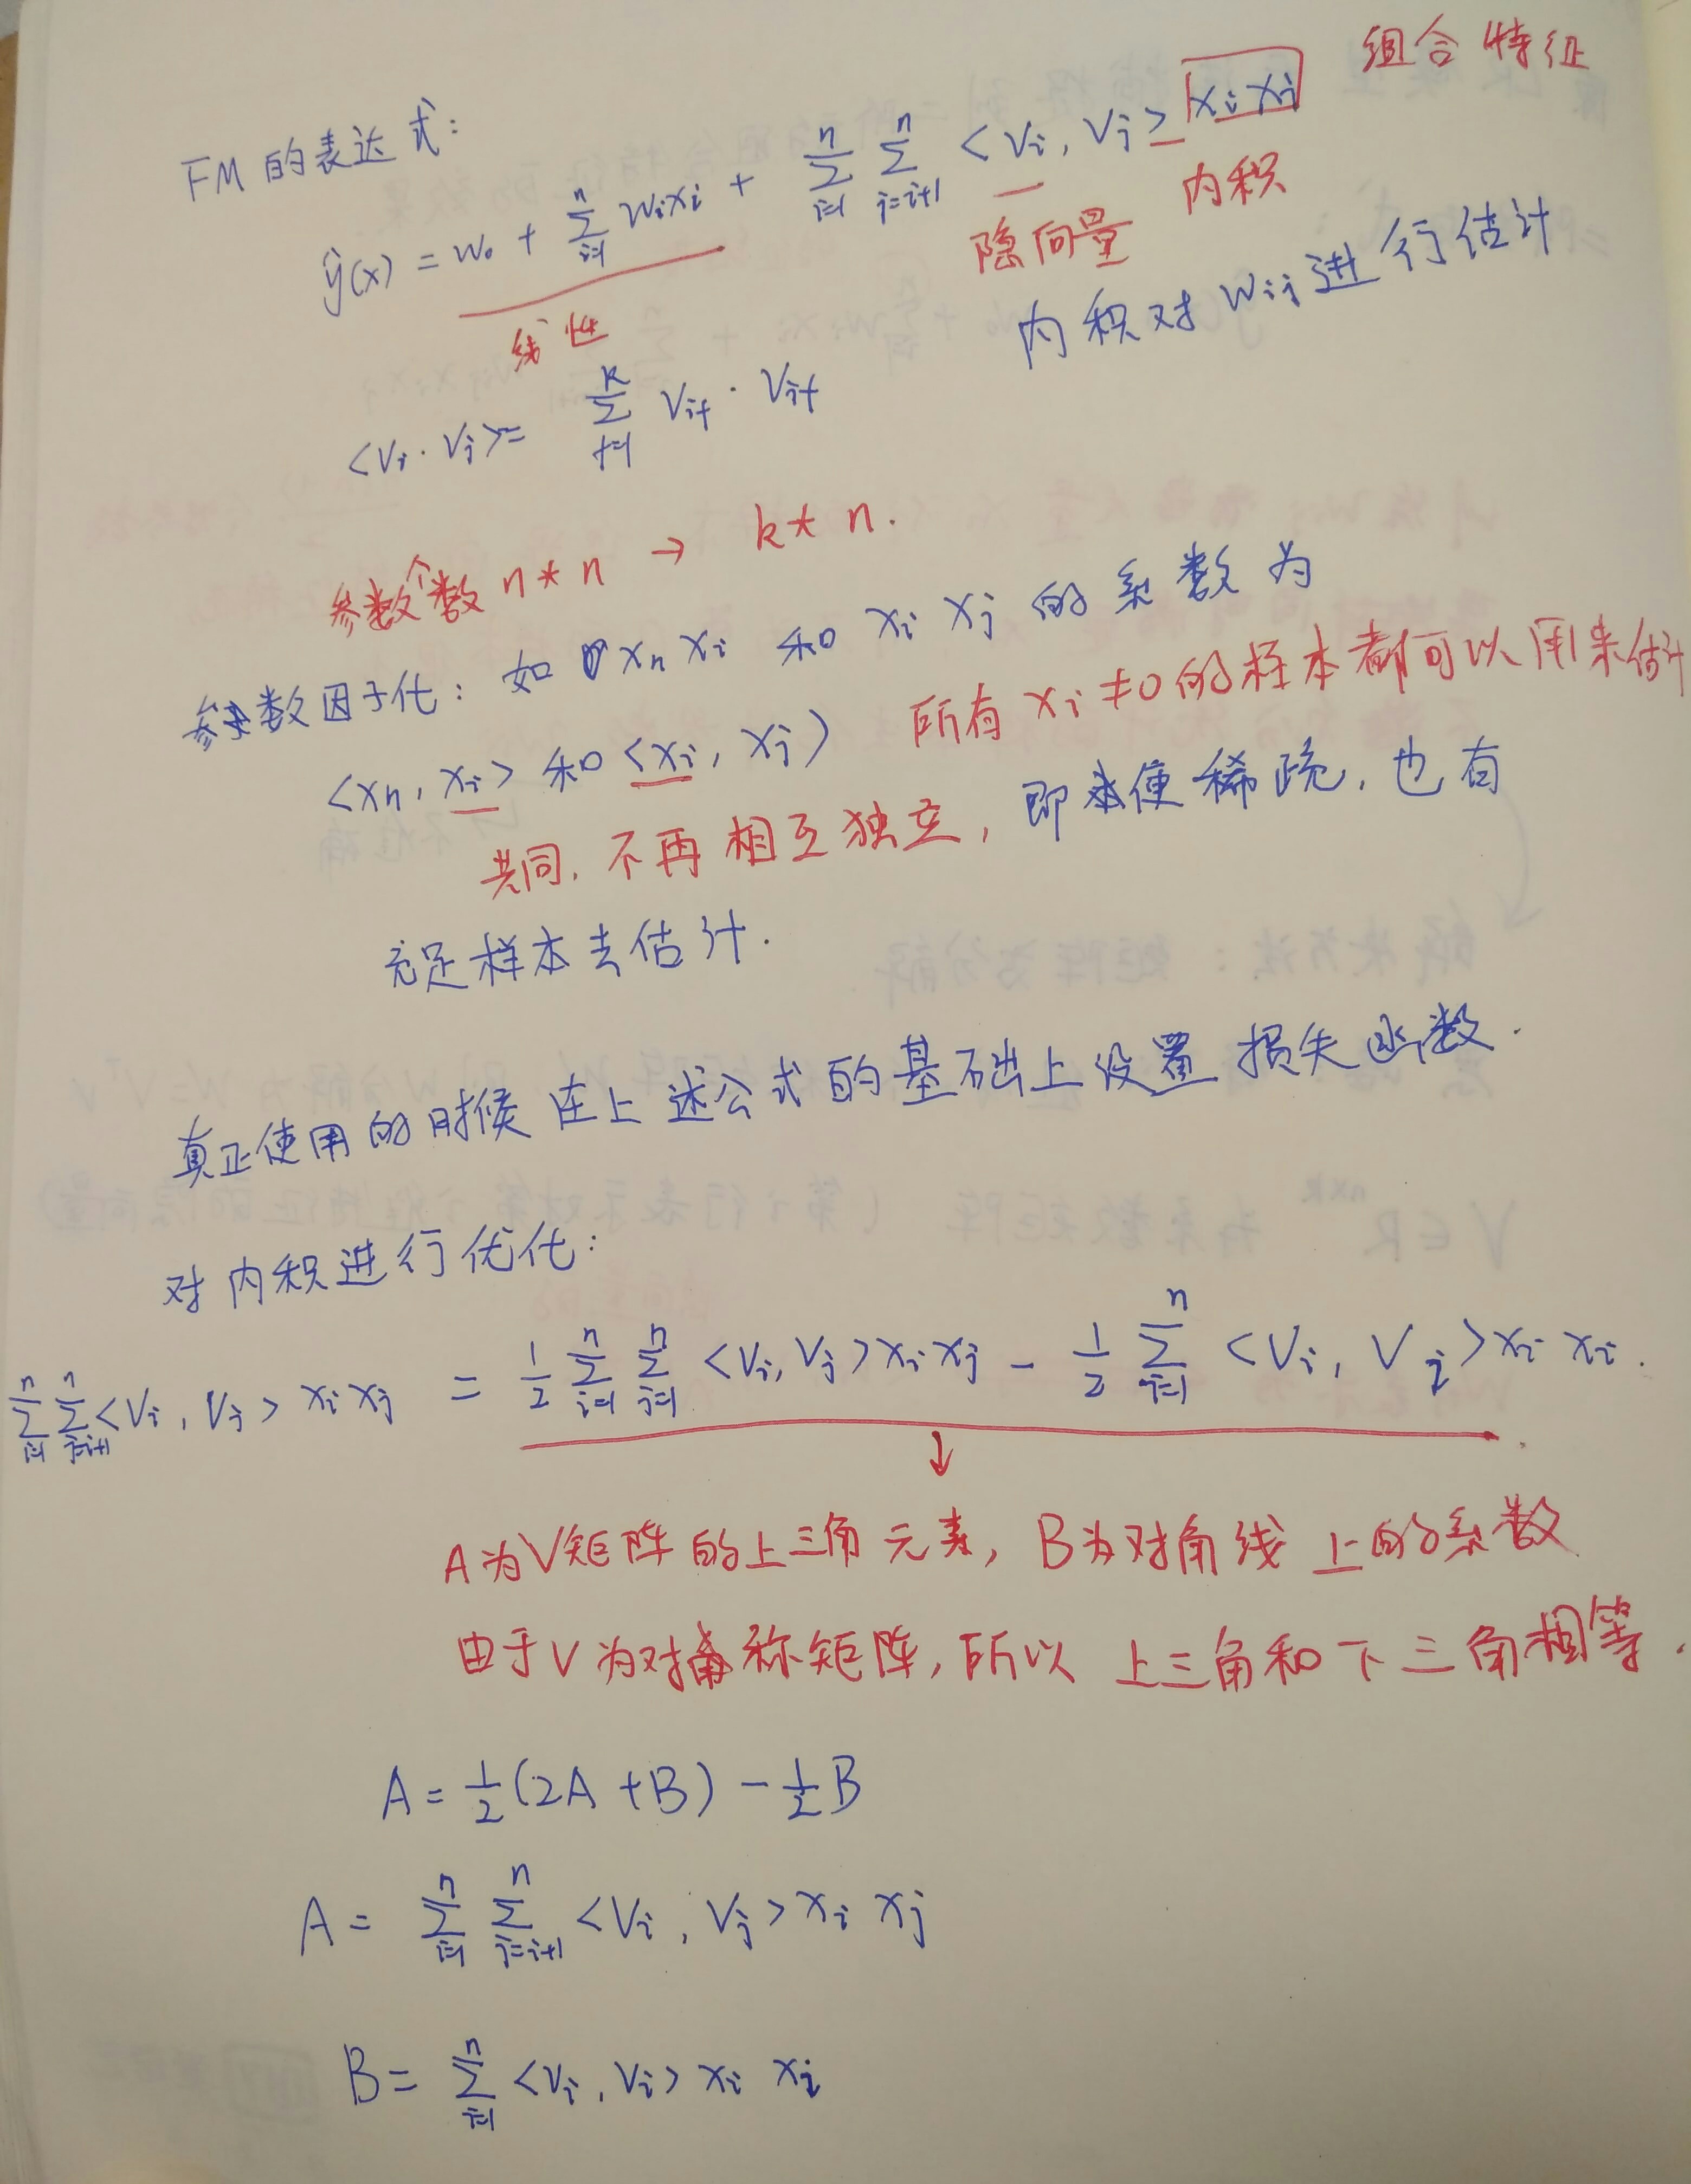 组合特征
FM的表达式:
ŷ(x) = w₀ + \sum_{i=1}^{n} wᵢxᵢ + \sum_{i=1}^{n} \sum_{j=i+1}^{n} <vᵢ, vⱼ> xᵢxⱼ
线性 隐向量 内积
内积对wᵢⱼ进行估计
<vᵢ·vⱼ> = \sum_{f=1}^{k} v_{if} · v_{jf}
参数个数 n*n → k*n.
参数因子化: 如 xₙxᵢ 和 xᵢxⱼ 的系数为
<xₙ, xᵢ> 和 <xᵢ, xⱼ) 所有xᵢ≠0的样本都可以用来估计
共同, 不再相互独立, 即使稀疏, 也有
充足样本去估计.
真正使用的时候在上述公式的基础上设置损失函数.
对内积进行优化:
\sum_{i=1}^{n} \sum_{j=i+1}^{n} <vᵢ, vⱼ> xᵢxⱼ = \frac{1}{2} \sum_{i=1}^{n} \sum_{j=1}^{n} <vᵢ, vⱼ> xᵢxⱼ - \frac{1}{2} \sum_{i=1}^{n} <vᵢ, vᵢ> xᵢxᵢ.
↓
A为V矩阵的上三角元素, B为对角线上的系数
由于V为对称矩阵, 所以上三角和下三角相等.
A = \frac{1}{2}(2A + B) - \frac{1}{2}B
A = \sum_{i=1}^{n} \sum_{j=i+1}^{n} <vᵢ, vⱼ> xᵢ xⱼ
B = \sum_{i=1}^{n} <vᵢ, vᵢ> xᵢ xᵢ